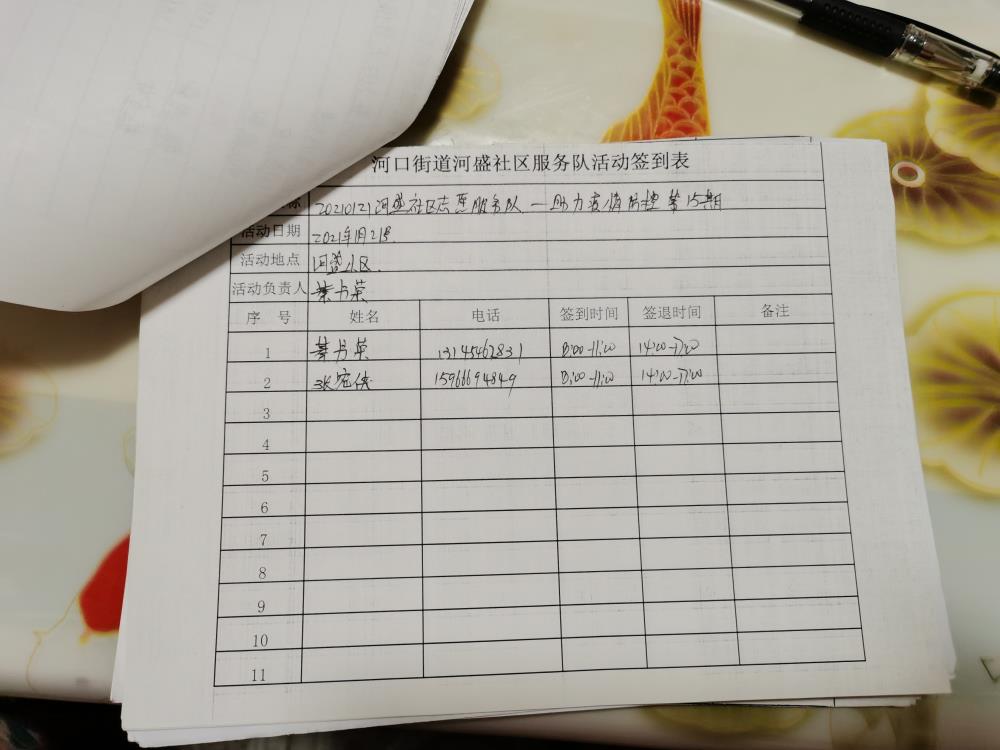 河口街道河盛社区服务队活动签到表
称 20210121河盛社区志愿服务队—助力疫情防控第15期
活动日期 2021年1月21号
活动地点 河盛小区
活动负责人 书英
序 号 姓名 电话 签到时间 签退时间 备注
1 书英 13145462831 8:00-11:00 14:00-17:00
2 张 15966694849 8:00-11:00 14:00-17:00
3
4
5
6
7
8
9
10
11